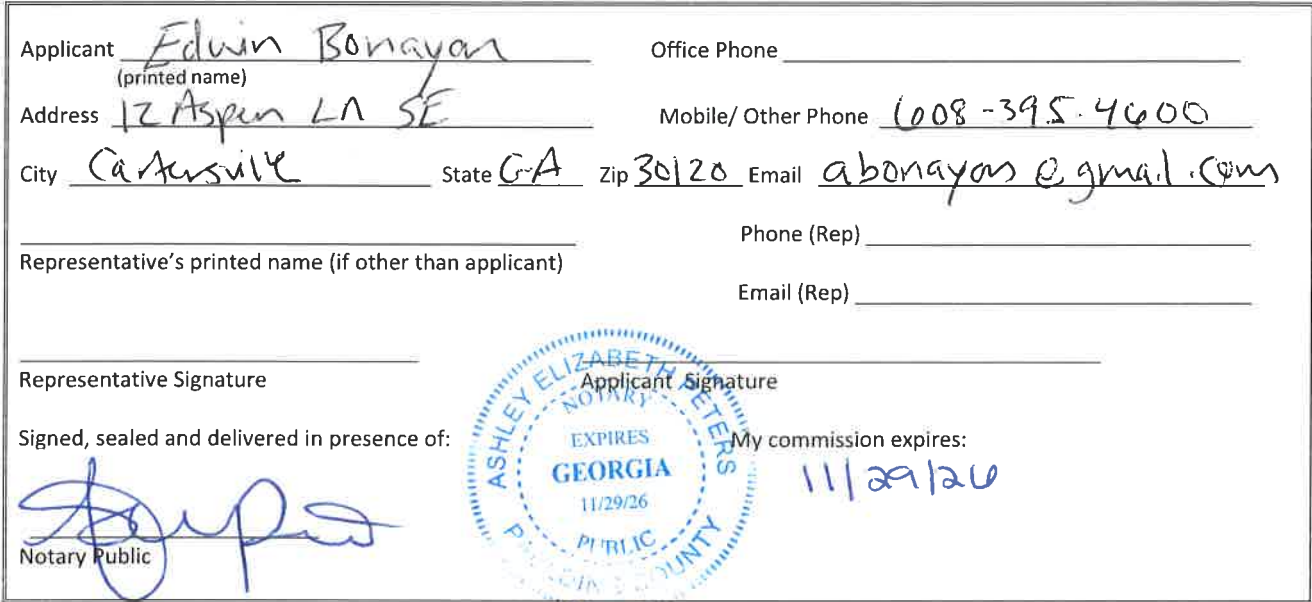 Applicant Edwin Bonayon Office Phone
(printed name)
Address 12 Aspen LN SE Mobile/ Other Phone 608-395-4600
City Cartersville State GA Zip 30120 Email abonayon@gmail.com
Phone (Rep)
Representative's printed name (if other than applicant)
Email (Rep)
Representative Signature Applicant Signature
Signed, sealed and delivered in presence of: My commission expires:
11/29/26
Notary Public
ASHLEY ELIZABETH PETERS
NOTARY
EXPIRES
GEORGIA
11/29/26
PUBLIC
COUNTY